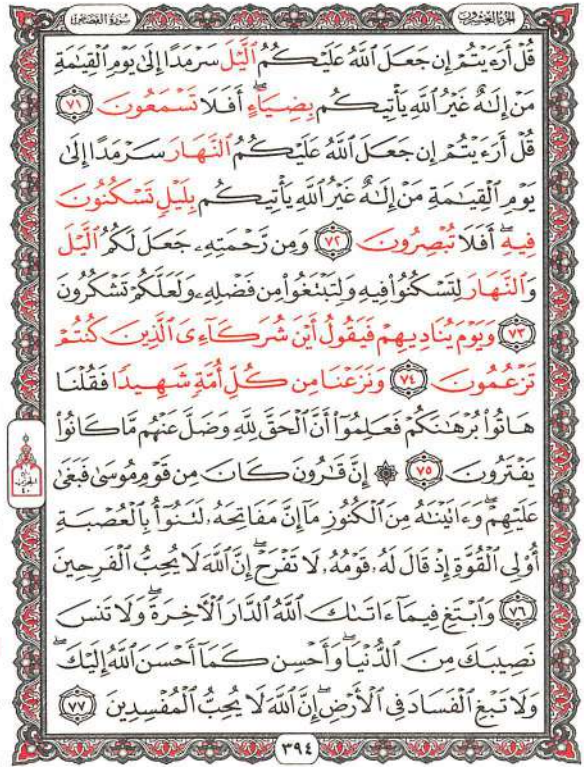 سُورَةُ القَصَصِ الجُزْءُ العِشْرُونَ
قُلْ أَرَءَيْتُمْ إِن جَعَلَ ٱللَّهُ عَلَيْكُمُ ٱلَّيْلَ سَرْمَدًا إِلَىٰ يَوْمِ ٱلْقِيَٰمَةِ
مَنْ إِلَٰهٌ غَيْرُ ٱللَّهِ يَأْتِيكُم بِضِيَآءٍ ۖ أَفَلَا تَسْمَعُونَ ٧١
قُلْ أَرَءَيْتُمْ إِن جَعَلَ ٱللَّهُ عَلَيْكُمُ ٱلنَّهَارَ سَرْمَدًا إِلَىٰ
يَوْمِ ٱلْقِيَٰمَةِ مَنْ إِلَٰهٌ غَيْرُ ٱللَّهِ يَأْتِيكُم بِلَيْلٍ تَسْكُنُونَ
فِيهِ ۖ أَفَلَا تُبْصِرُونَ ٧٢ وَمِن رَّحْمَتِهِۦ جَعَلَ لَكُمُ ٱلَّيْلَ
وَٱلنَّهَارَ لِتَسْكُنُوا۟ فِيهِ وَلِتَبْتَغُوا۟ مِن فَضْلِهِۦ وَلَعَلَّكُمْ تَشْكُرُونَ
٧٣ وَيَوْمَ يُنَادِيهِمْ فَيَقُولُ أَيْنَ شُرَكَآءِىَ ٱلَّذِينَ كُنتُمْ
تَزْعُمُونَ ٧٤ وَنَزَعْنَا مِن كُلِّ أُمَّةٍ شَهِيدًا فَقُلْنَا
هَاتُوا۟ بُرْهَٰنَكُمْ فَعَلِمُوٓا۟ أَنَّ ٱلْحَقَّ لِلَّهِ وَضَلَّ عَنْهُم مَّا كَانُوا۟
يَفْتَرُونَ ٧٥ ۞ إِنَّ قَٰرُونَ كَانَ مِن قَوْمِ مُوسَىٰ فَبَغَىٰ
عَلَيْهِمْ ۖ وَءَاتَيْنَٰهُ مِنَ ٱلْكُنُوزِ مَآ إِنَّ مَفَاتِحَهُۥ لَتَنُوٓأُ بِٱلْعُصْبَةِ
أُو۟لِى ٱلْقُوَّةِ إِذْ قَالَ لَهُۥ قَوْمُهُۥ لَا تَفْرَحْ ۖ إِنَّ ٱللَّهَ لَا يُحِبُّ ٱلْفَرِحِينَ
٧٦ وَٱبْتَغِ فِيمَآ ءَاتَىٰكَ ٱللَّهُ ٱلدَّارَ ٱلْءَاخِرَةَ ۖ وَلَا تَنسَ
نَصِيبَكَ مِنَ ٱلدُّنْيَا ۖ وَأَحْسِن كَمَآ أَحْسَنَ ٱللَّهُ إِلَيْكَ ۖ
وَلَا تَبْغِ ٱلْفَسَادَ فِى ٱلْأَرْضِ ۖ إِنَّ ٱللَّهَ لَا يُحِبُّ ٱلْمُفْسِدِينَ ٧٧
٣٩٤